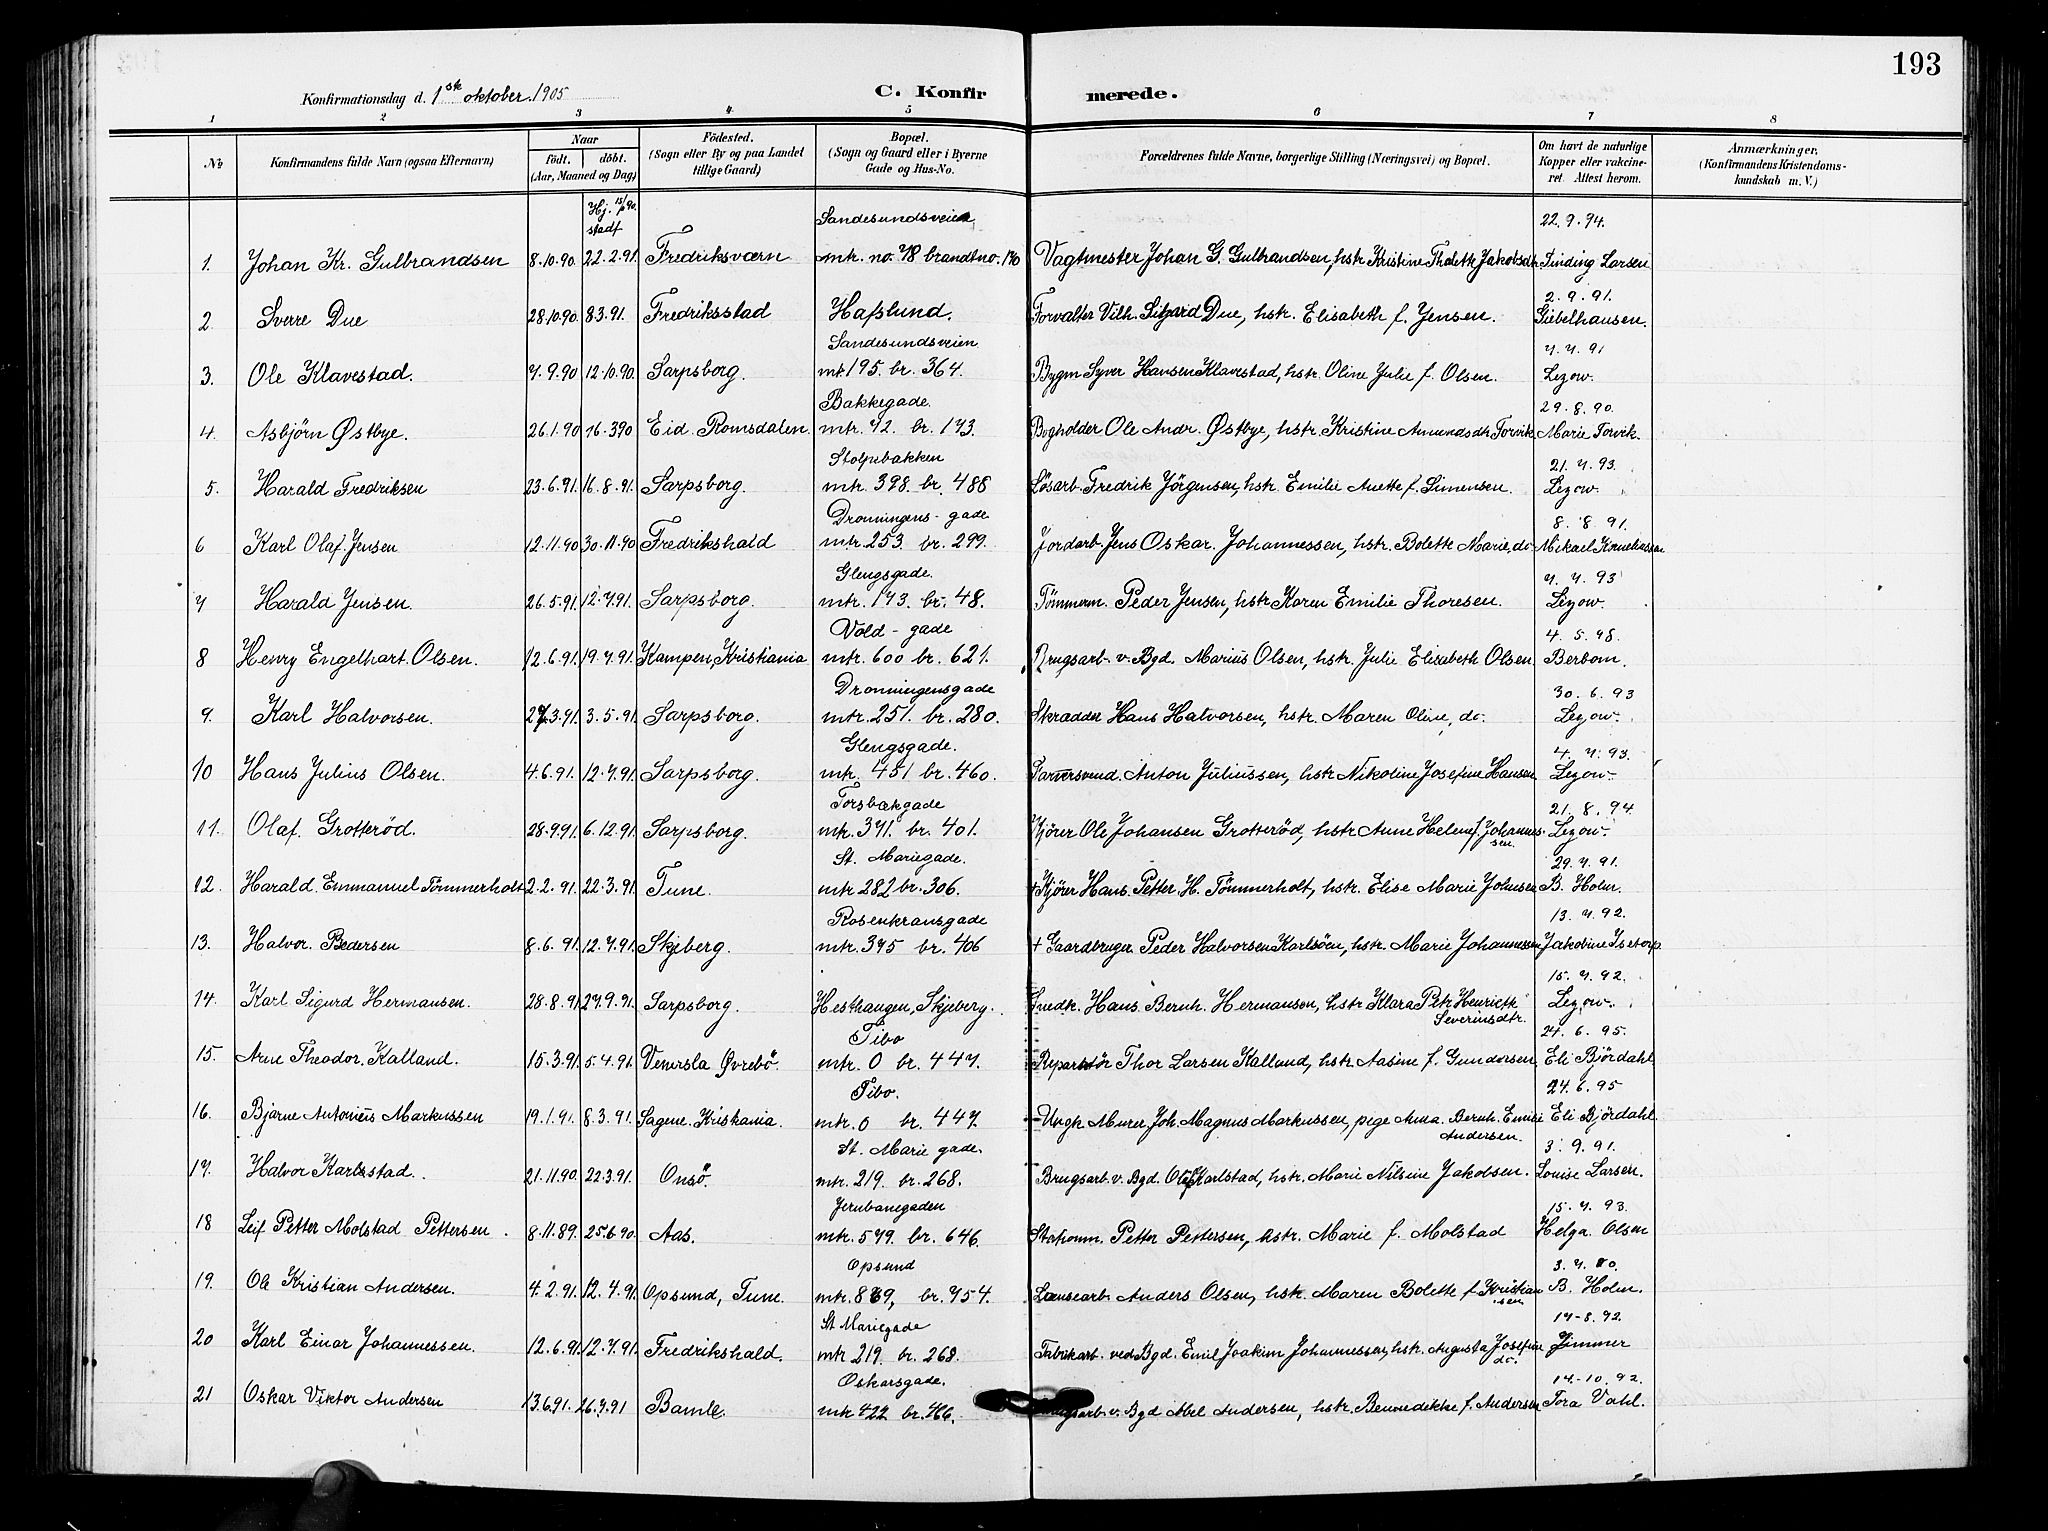 193
Konfirmationsdag d. 1ste oktober 1905 C. Konfir merede.
1 2 3 4 5 6 7 8
No Konfirmandens fulde Navn (ogsaa Efternavn) Naar født. døbt. (Aar, Maaned og Dag) Födested. (Sogn eller By og paa Landet tillige Gaard) Bopæl. (Sogn og Gaard eller i Byerne Gade og Hus-No. Forældrenes fulde Navne, borgerlige Stilling (Næringsvei) og Bopæl. Om havt de naturlige Kopper eller vakcineret. Attest herom. Anmærkninger, (Konfirmandens Kristendomskundskab m. V.)
Hj. stadf Sandesundsveien 22.9.94.
1. Johan Kr. Gulbrandsen 8.10.90. 22.2.91. Fredriksværn mtr. no. 78 brandtno. 170 Vagtmester Johan G. Gulbrandsen, hstr. Kristine Jakobsdtr. Sinding Larsen
2.9.91.
2. Sverre Due 28.10.90. 8.3.91. Fredriksstad Hafslund. Forvalter Vilh. Sigvard Due, hstr. Elisabeth f. Jensen. Giebelhausen.
Sandesundsveien. 7.7.91
3. Ole Klavestad. 7.9.90 12.10.90. Sarpsborg. mtr. 195. br. 364. Bygm Syver Hansen Klavestad, hstr. Oline Julie f. Olsen. Lezow.
Bakkegade. 29.8.90.
4. Asbjörn Østbye. 26.1.90 16.3.90 Eid. Romsdalen. mtr. 72. br. 173. Bogholder Ole Andr. Østbye, hstr. Kristine Amundsdtr. Torvik. Marie Torvik.
Stolpebakken 21.7.93.
5. Harald Fredriksen 23.6.91. 16.8.91. Sarpsborg. mtr. 398. br. 488 Løsarb. Fredrik Jörgensen, hstr. Emilie Anette f. Simensen. Lezow.
Dronningens-gade 8.8.91.
6 Karl Olaf. Jensen 12.11.90 30.11.90 Fredrikshald mtr. 253. br. 299. Jordarb. Jens Oskar. Johannessen, hstr. Bolette Marie, do. Mikael Korneliussen
Glengsgade. 7.7.93
7 Harald Jensen. 26.5.91. 12.7.91. Sarpsborg. mtr. 173. br. 48. Tömmerm. Peder Jensen, hstr. Karen Emilie Thoresen. Lezow.
Vold-gade 4.5.98.
8 Henry Engelhart. Olsen. 12.6.91. 19.7.91. Kampen, Kristiania mtr. 600 br. 621. Brugsarb. v. Bgd. Marius Olsen, hstr. Julie Elisabeth Olsen. Berbom.
Dronningensgade 30.6.93
9. Karl Halvorsen. 27.3.91. 3.5.91. Sarpsborg. mtr. 251. br. 280. Skrædder Hans Halvorsen, hstr. Maren Oline, do. Lezow.
Glengsgade. 4.7.93.
10 Hans Julius Olsen. 4.6.91. 12.7.91. Sarpsborg. mtr. 451 br. 460. Garversvend. Anton Juliussen, hstr. Nikoline Josefine Hansen Lezow.
Torsbækgade 21.8.94
11. Olaf. Grotterød. 28.9.91. 6.12.91. Sarpsborg. mtr. 371. br. 401. Kjörer Ole Johansen Grotterød, hstr. Anne Helene f. Johannessen. Lezow.
St. Mariegade. 29.7.91.
12. Harald. Emmanuel Tömmerholt 2.2.91. 22.3.91. Tune. mtr 282 br. 306. + Kjörer Hans. Petter. H. Tömmerholt, hstr. Elise Marie Johnsen B. Holm.
Rosenkransgade 13.7.92.
13. Halvor. Pedersen 8.6.91. 12.7.91. Skjeberg. mtr. 375 br. 406 + Gaardbruger Peder Halvorsen Karlsöen, hstr. Marie Johannessen Jakobine
15.7.92.
14. Karl Sigurd Hermansen. 28.8.91. 27.9.91. Sarpsborg. Hesthaugen, Skjeberg. Snedk. Hans. Bernh. Hermansen, hstr. Klara Petr. Henriette Severinsdtr. Lezow.
Tibo 24.6.95.
15. Arne Theodor. Kalland. 15.3.91. 5.4.91. Vennesla Øvrebö. mtr. 0 br. 447. Reparatör Thor Larsen Kalland, hstr. Aasine f. Gundersen. Eli Björdahl
Tibo. 24.6.95
16. Bjarne Antonius Markussen 19.1.91. 8.3.91. Sagene. Kristiania. mtr. 0 br. 447. Ungk Murer Joh. Magnus Markussen, pige Anna. Bernh. Emilie Andersen. Eli Björdahl.
St. Marie gade. 3.9.91.
17. Halvor Karlsstad. 21.11.90. 22.3.91. Onsö. mtr. 219. br. 268. Brugsarb. v. Bgd. Olaf Karlstad, hstr. Marie Nilsine Jakobsen. Louise Larsen.
Jernbanegaden 15.7.93.
18 Leif Petter Molstad Pettersen. 8.11.89. 25.6.90. Aas. mtr. 579. br. 646. Stationm. Petter Pettersen, hstr. Marie f. Molstad Helga. Olsen
Opsund 3.7.00.
19. Ole Kristian Andersen. 4.2.91. 12.4.91. Opsund, Tune. mtr. 869, br. 754. Lænsearb. Anders Olsen, hstr. Maren Bolette f. Kristiansen B. Holm.
St Mariegade 17-8.92.
20 Karl Einar Johannessen. 12.6.91. 12.7.91. Fredrikshald. mtr 219. br. 268. Fabrikarb. ved Bgd. Emil Joakim Johannessen, hstr. Augusta Josefine do. Zimmer
Oskarsgade. 14.-10.92.
21 Oskar Viktor Andersen 13.6.91. 26.7.91 Bamle. mtr 422 br. 466. Brugsarb. v. Bgd Abel Andersen, hstr. Bennedikke f. Andersen Tora Vahl.